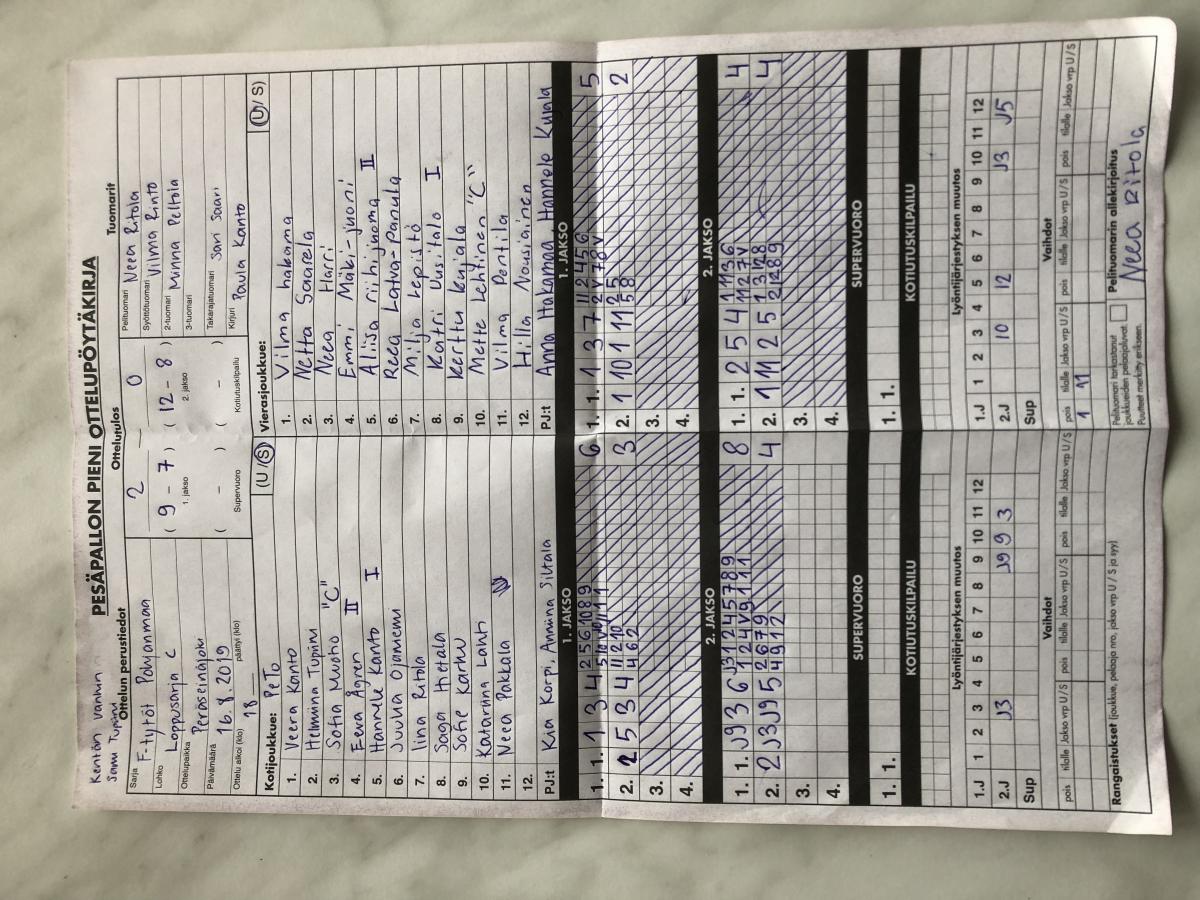 Kentän vanhin
Sanu Tupiini
PESÄPALLON PIENI OTTELUPÖYTÄKIRJA
Ottelun perustiedot
Sarja F-tytöt Pohjanmaa
Lohko Loppusarja C
Ottelupaikka Peräseinäjoki
Päivämäärä 16.8.2019
Ottelu alkoi (klo) 18 päättyi (klo)
Ottelutulos
2 — 0
( 9 – 7 ) ( 12 – 8 )
1. jakso 2. jakso
( – ) ( – )
Supervuoro Kotiutuskilpailu
Tuomarit
Pelituomari Neea Ritola
Syöttötuomari Vilma Rinto
2-tuomari Minna Peltola
3-tuomari
Takarajatuomari Sari Saari
Kirjuri Paula Kanto
Kotijoukkue: PeTo (U / S)
1. Veera Kanto
2. Helmiina Tupiini
3. Sofia Muotio "C"
4. Eeva Ågren II
5. Hannele Kanto I
6. Juulia Ojaniemi
7. Iina Ritala
8. Saga Hietala
9. Sofie Karhu
10. Katariina Lahti
11. Neea Pakkala
12.
PJ:t Kia Korpi, Anniina Siltala
Vierasjoukkue: (U / S)
1. Vilma hakama
2. Netta Saarela
3. Neea Harri
4. Emmi Mäki-juori
5. Aliisa riihijuoma II
6. Reea Latva-Panula
7. Milja Lepistö
8. Katri Uusitalo I
9. Kerttu kujala
10. Mette Lehtinen "C"
11. Vilma Pentila
12. Hilla Nousiainen
PJ:t Anna Hakamaa, Hannele Kujala
1. JAKSO
1. 1. 1 3 4 6
2. 2 5 3 4 3
3.
4.
1. JAKSO
1. 1. 1 3 7 5
2. 1 10 11 2
3.
4.
2. JAKSO
1. 1. J9 3 6 8
2. 2 J3 J9 5 4
3.
4.
2. JAKSO
1. 1. 2 5 4 4
2. 1 11 2 5 4
3.
4.
SUPERVUORO
1. 1.
SUPERVUORO
1. 1.
KOTIUTUSKILPAILU
KOTIUTUSKILPAILU
Lyöntijärjestyksen muutos
1.J 1 2 3 4 5 6 7 8 9 10 11 12
2.J J3 J9 9 3
Sup
Lyöntijärjestyksen muutos
1.J 1 2 3 4 5 6 7 8 9 10 11 12
2.J 10 12 J3 J5
Sup
Vaihdot
pois tilalle Jakso vrp U/S pois tilalle Jakso vrp U/S pois tilalle Jakso vrp U/S
Vaihdot
pois tilalle Jakso vrp U/S pois tilalle Jakso vrp U/S pois tilalle Jakso vrp U/S
1 11
Rangaistukset (joukkue, pelaaja nro, jakso vrp U / S ja syy)
Pelituomari tarkastanut
joukkueiden pelaajaluvat.
Puutteet merkitty erikseen.
Pelituomarin allekirjoitus
Neea Ritola